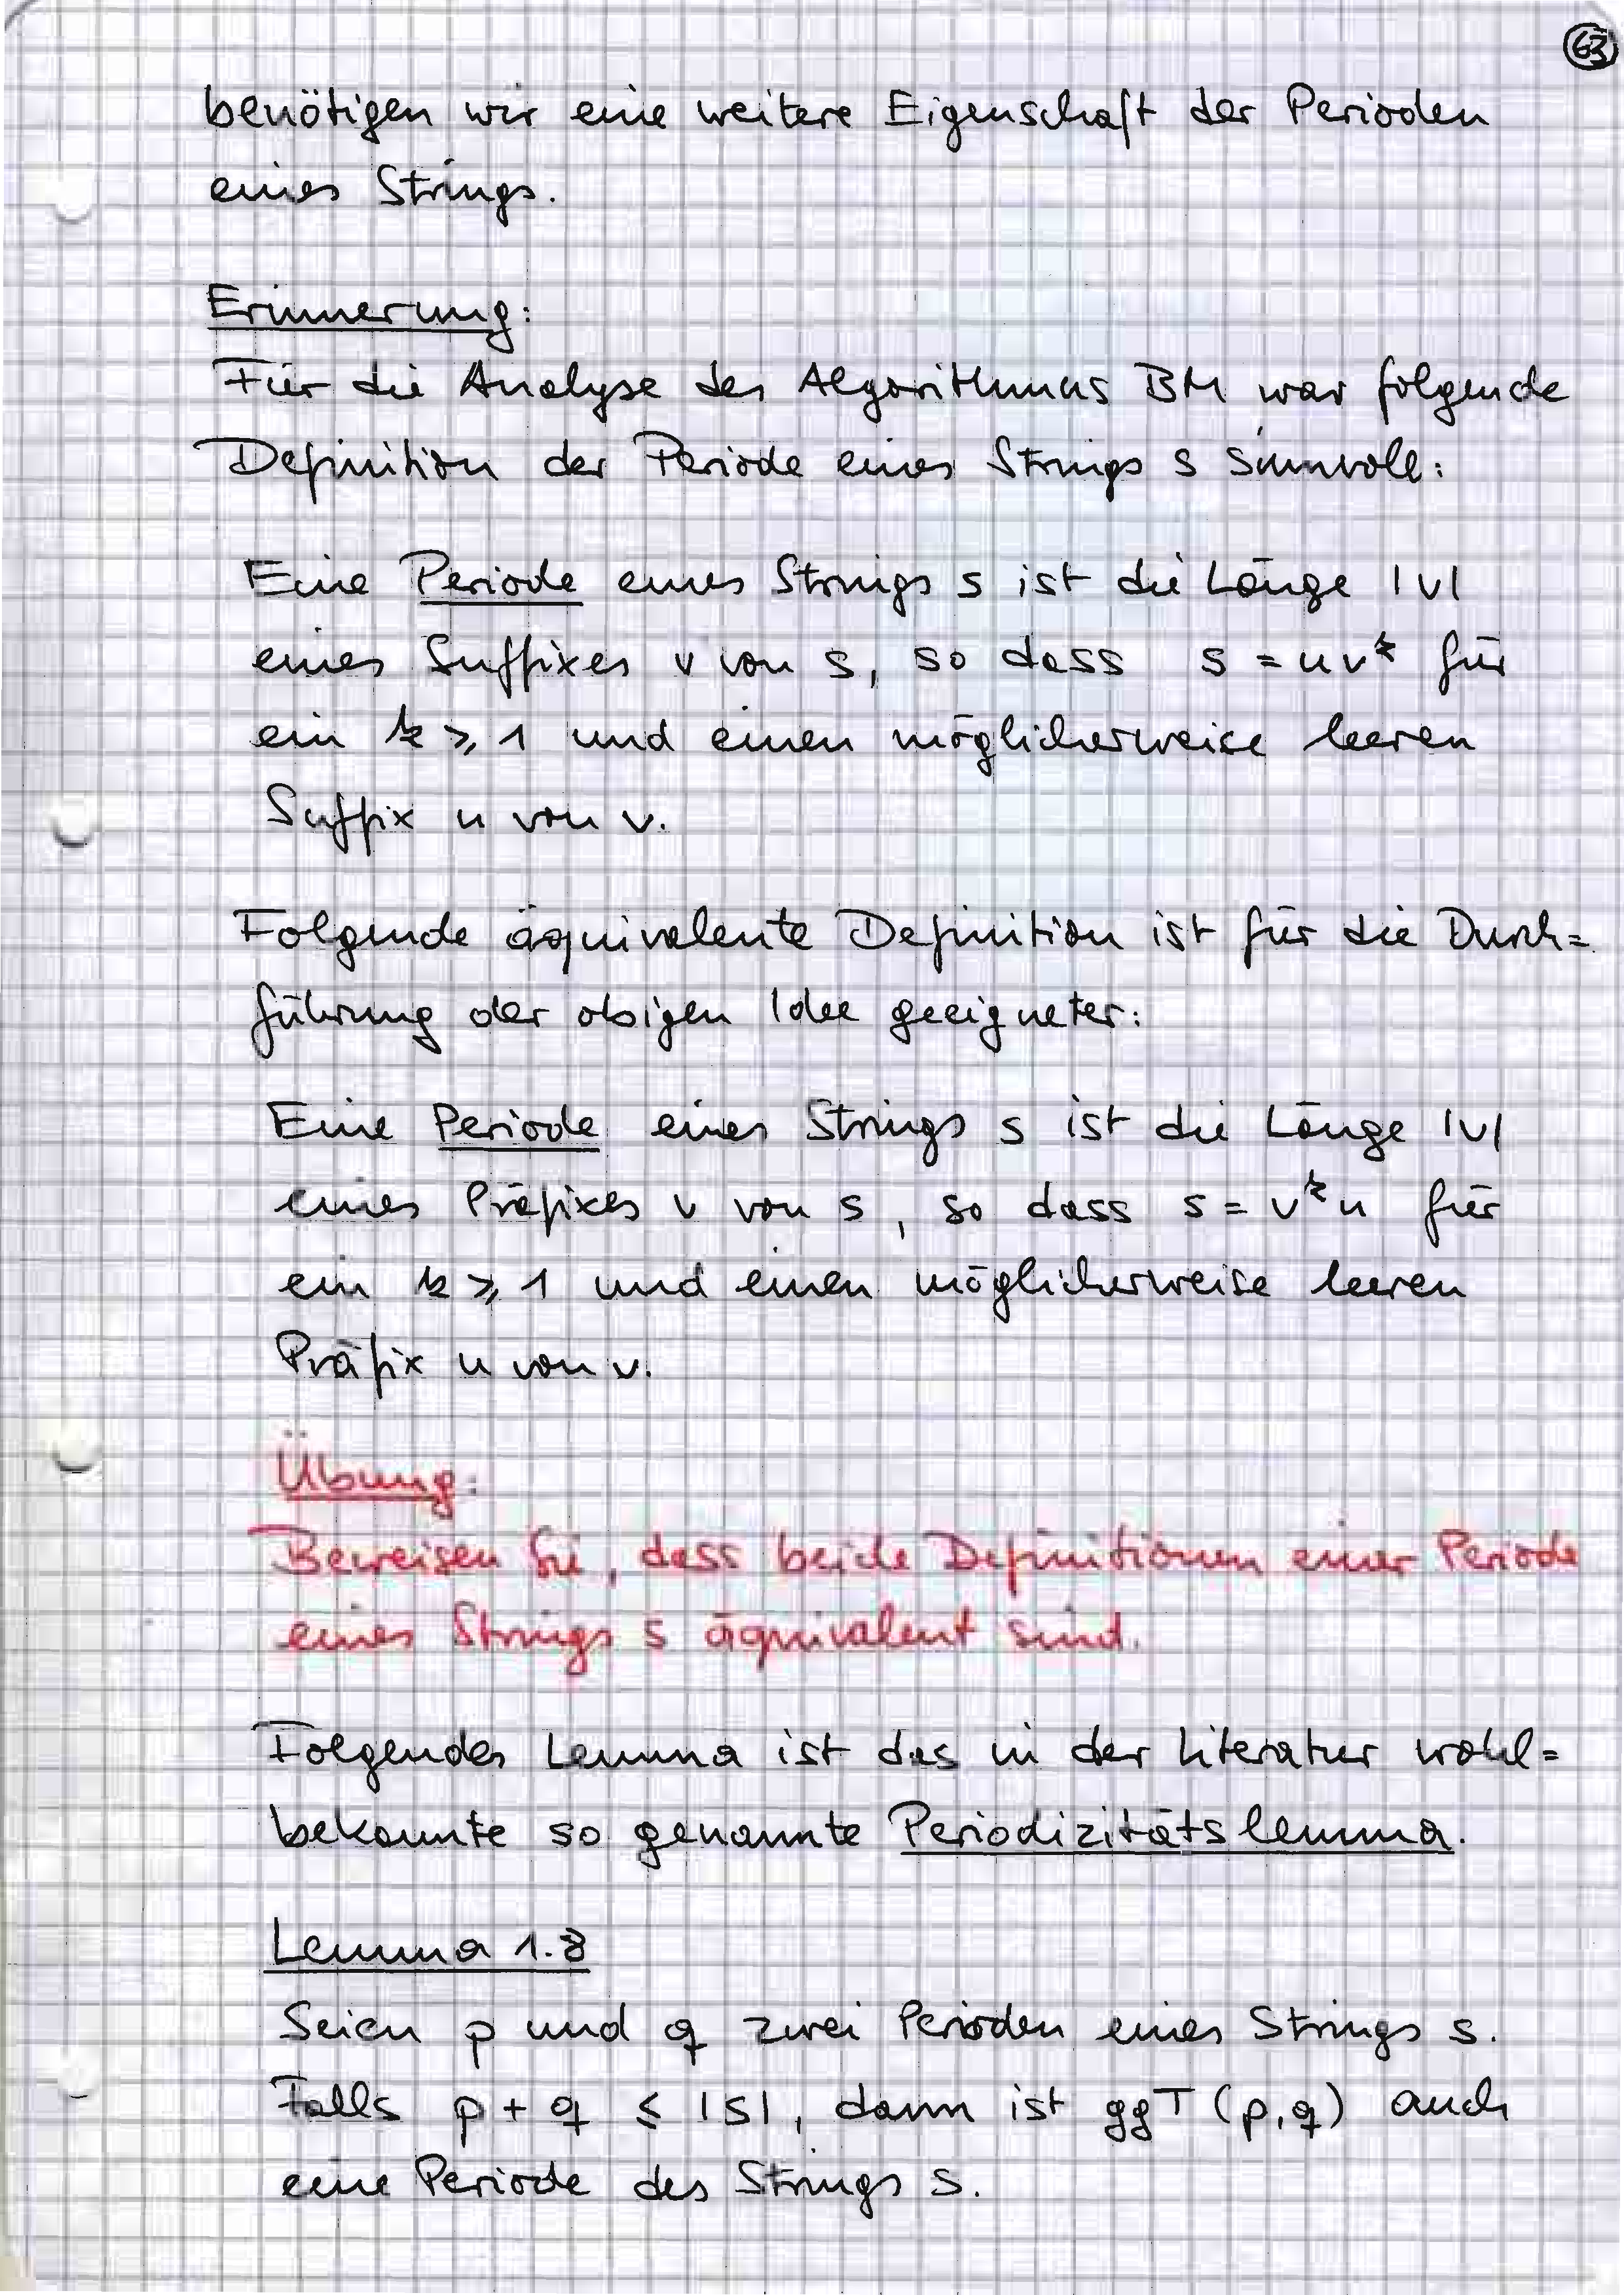 63
benötigen wir eine weitere Eigenschaft der Perioden
eines Strings.
Erinnerung:
Für die Analyse des Algorithmus BM war folgende
Definition der Periode eines Strings s sinnvoll:
Eine Periode eines Strings s ist die Länge |v|
eines Suffixes v von s, so dass s = uvᵏ für
ein k ≥ 1 und einen möglicherweise leeren
Suffix u von v.
Folgende äquivalente Definition ist für die Durch=
führung der obigen Idee geeigneter:
Eine Periode eines Strings s ist die Länge |v|
eines Präfixes v von s, so dass s = vᵏu für
ein k ≥ 1 und einen möglicherweise leeren
Präfix u von v.
Übung:
Beweisen Sie, dass beide Definitionen einer Periode
eines Strings s äquivalent sind.
Folgendes Lemma ist das in der Literatur wohl=
bekannte so genannte Periodizitätslemma.
Lemma 1.8
Seien p und q zwei Perioden eines Strings s.
Falls p + q ≤ |s|, dann ist ggT (p,q) auch
eine Periode des Strings s.